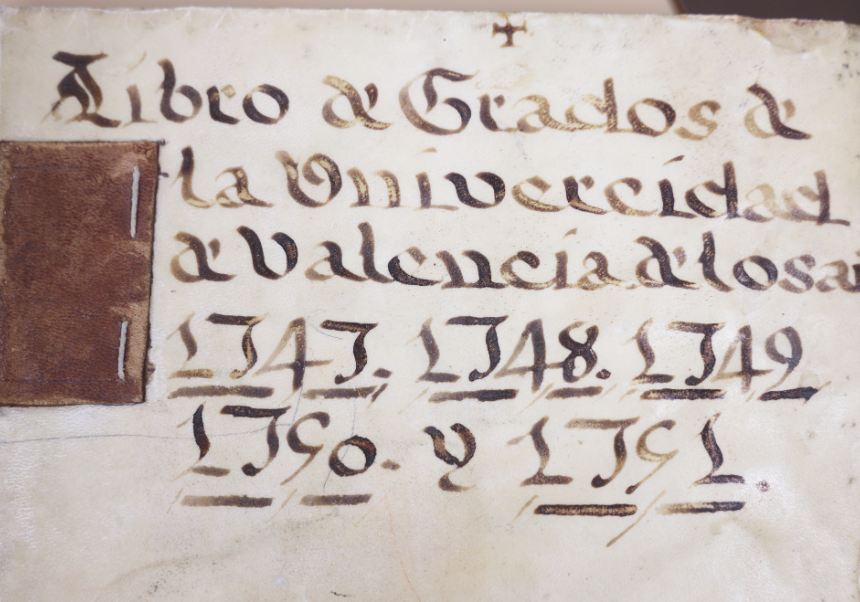 Libro de Grados de
la Univercidad
de Valencia de los a
1747. 1748. 1749
1750. y 1751.